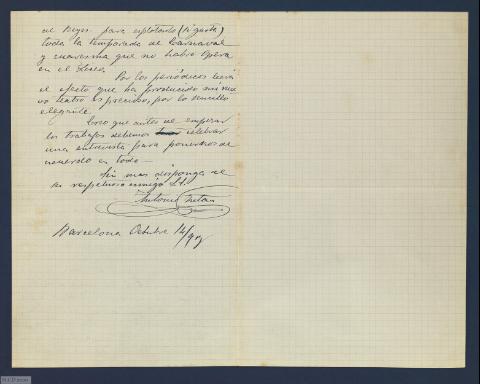 de Reyes. para esplotarlo (si gusta)
toda la temporada de Carnaval
y cuaresma que no habrá Opera
en el Liceo.
Por los periódicos verá
el efecto que ha producido mi nue
vo teatro es precioso, por lo sencillo
elegante.
Creo que antes de empezar
los trabajos debemos celebrar
una entrevista para ponernos de
acuerdo en todo—
Sin mas disponga de
su respetuoso amigo S.S.
Antonio
Barcelona Octubre 14/90